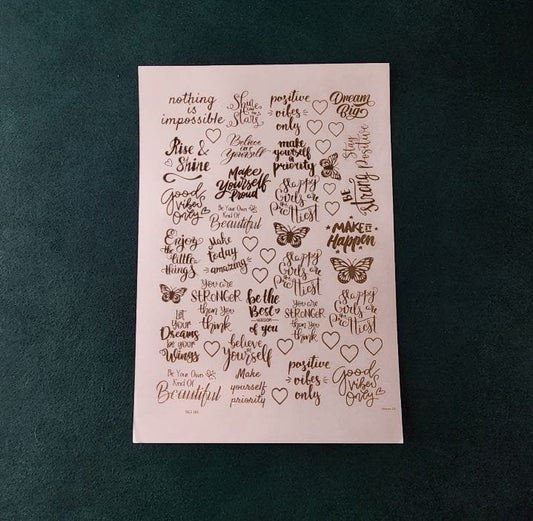 nothing
is
impossible
Shine
Like
the
Stars
positive
vibes
only
Dream
Big
Rise &
Shine
Believe
in
Yourself
make
yourself
a
priority
Stay
Positive
BE
Strong
Good
vibes
Only
Make
Yourself
Proud
Happy
Girls are
the
Prettiest
Be Your Own
Kind Of
Beautiful
MAKE IT
Happen
Enjoy
the
little
things
Make
today
amazing
Happy
Girls are
the
Prettiest
You are
STRONGER
than You
think
be the
Best
VERSION
of you
You are
STRONGER
than You
think
Happy
Girls are
the
Prettiest
Let
Your
Dreams
be your
Wings
believe
in
Yourself
Be Your Own
Kind Of
Beautiful
Make
yourself
priority
positive
vibes
only
Good
vibes
Only